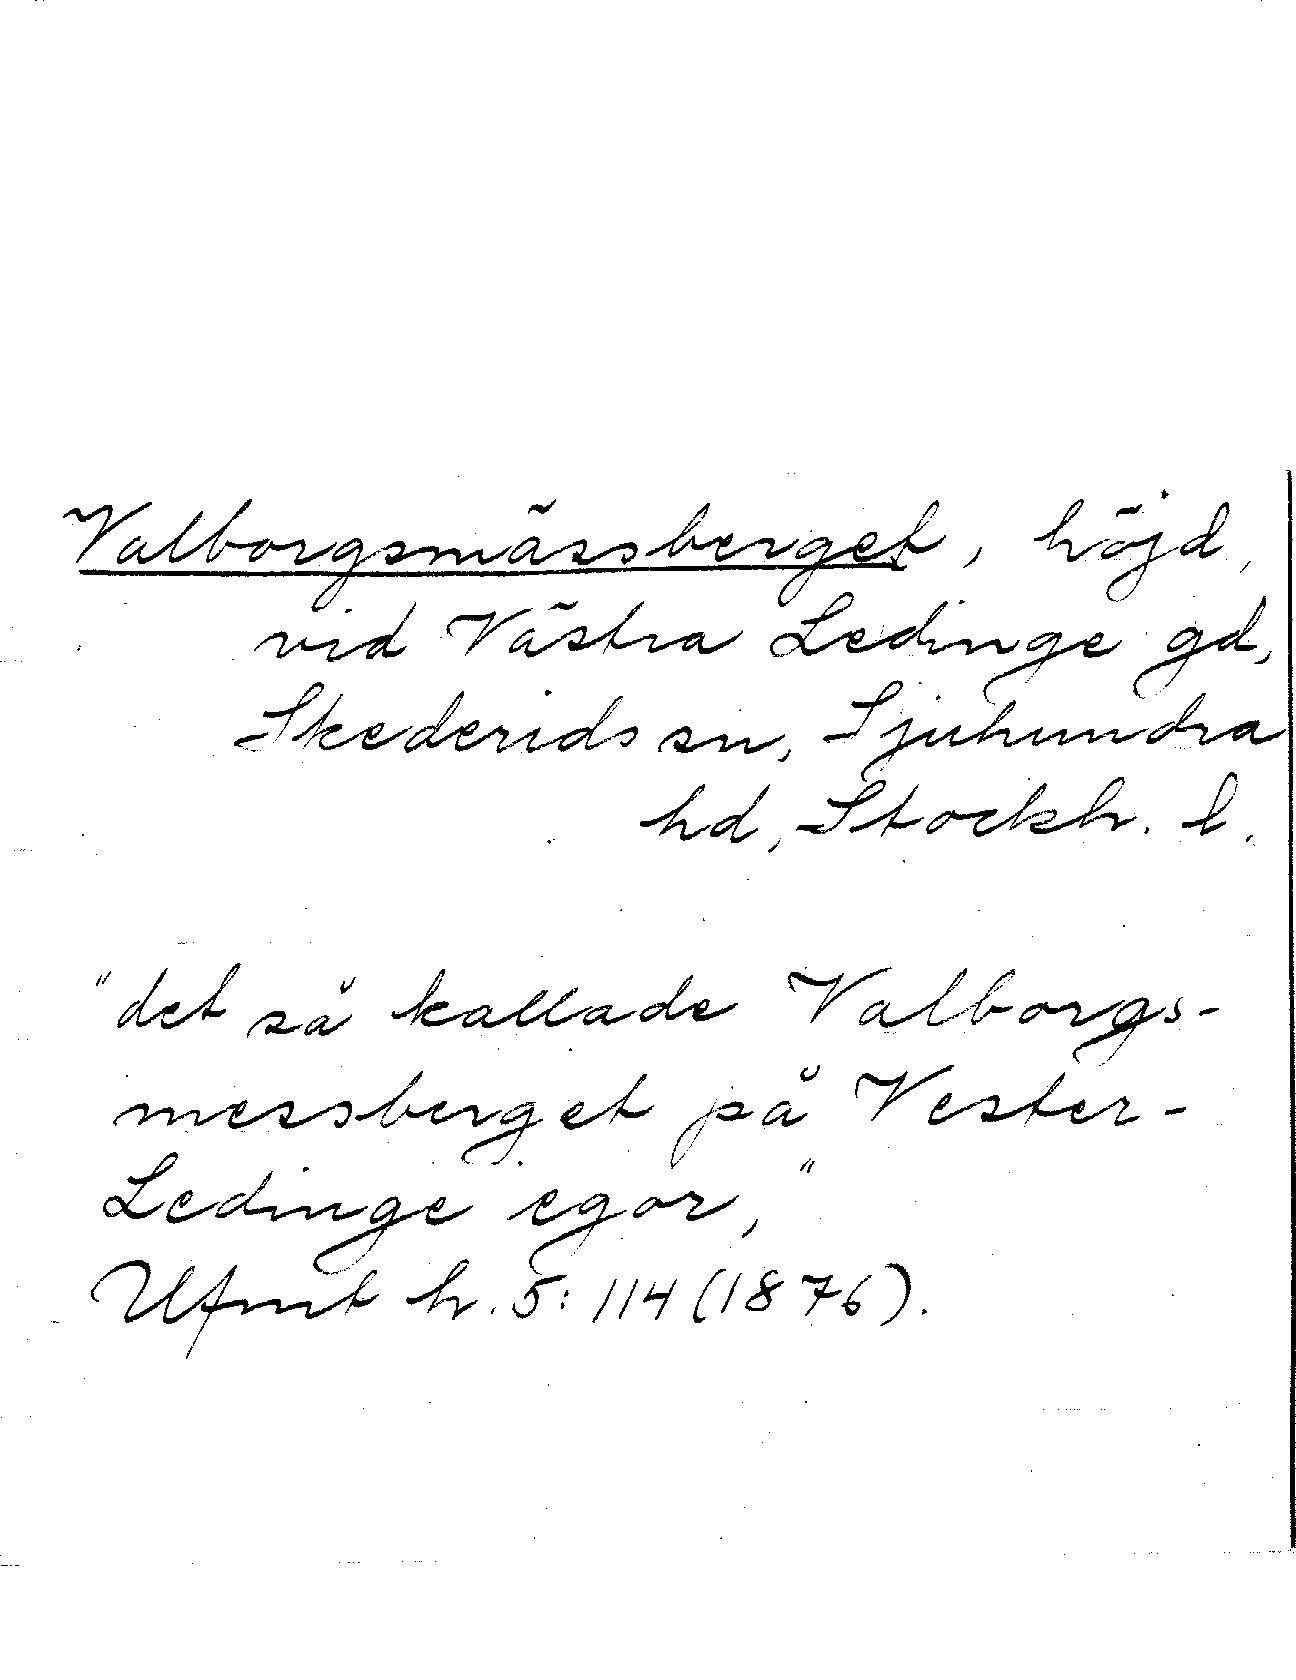 Valborgsmässberget, höjd,
vid Västra Ledinge gd,
Skederids sn, Sjuhundra
hd, Stockh. l.
"det så kallade Valborgs-
messberget på Vester-
Ledinge egor,"
Ufmt h. 5: 114 (1876).